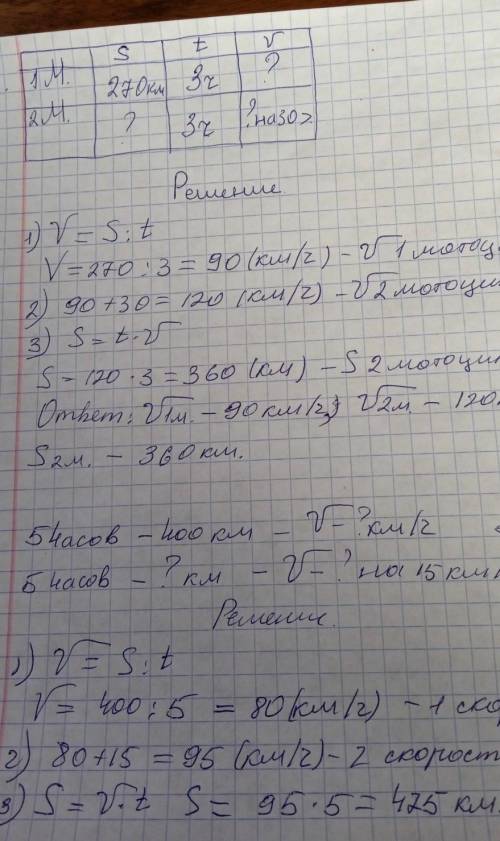 S t V
1М. 270км 3ч ?
2М. ? 3ч ? на 30 >
Решение
1) V = S : t
V = 270 : 3 = 90 (км/ч) – V 1 мотоц
2) 90 + 30 = 120 (км/ч) – V 2 мотоци
3) S = t · V
S = 120 · 3 = 360 (км) – S 2 мотоци
Ответ: V 1м. – 90 км/ч; V 2м. – 120
S 2м. – 360 км.
5 часов – 400 км – V – ? км/ч
5 часов – ? км – V – ? на 15 км
Решение.
1) V = S : t
V = 400 : 5 = 80 (км/ч) – 1 ско
2) 80 + 15 = 95 (км/ч) – 2 скорост
3) S = V · t S = 95 · 5 = 475 км